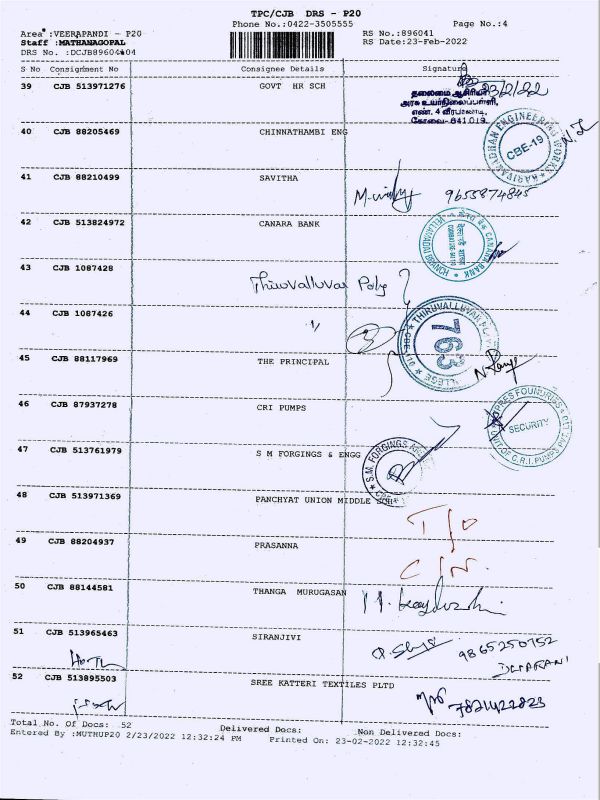 TPC/CJB DRS - P20
Phone No.:0422-3505555 Page No.:4
Area :VEERAPANDI - P20 RS No.:896041
Staff :MATHANAGOPAL RS Date:23-Feb-2022
DRS No. :DCJB89604404
S No Consignment No Consignee Details Signature
39 CJB 513971276 GOVT HR SCH
23/2/22
தலைமை ஆசிரியர்
அரசு உயர்நிலைப்பள்ளி,
கோவை-641 019.
40 CJB 88205469 CHINNATHAMBI ENG
HARIVARADHAN ENGINEERING WORKS
CBE-19
41 CJB 88210499 SAVITHA
9655874845
42 CJB 513824972 CANARA BANK
CANARA BANK
43 CJB 1087428 Thiruvalluvar Poly
44 CJB 1087426 "
3
THIRUVALLUVAR
763
45 CJB 88117969 THE PRINCIPAL
46 CJB 87937278 CRI PUMPS
SECURITY
47 CJB 513761979 S M FORGINGS & ENGG
S.M. FORGINGS
48 CJB 513971369 PANCHYAT UNION MIDDLE SCH
T/O
49 CJB 88204937 PRASANNA
C/N.
50 CJB 88144581 THANGA MURUGASAN
51 CJB 513965463 SIRANJIVI
9865250752
52 CJB 513895503 SREE KATTERI TEXTILES PLTD
7821422823
Total No. Of Docs: 52 Delivered Docs: Non Delivered Docs:
Entered By :MUTHUP20 2/23/2022 12:32:24 PM Printed On: 23-02-2022 12:32:45